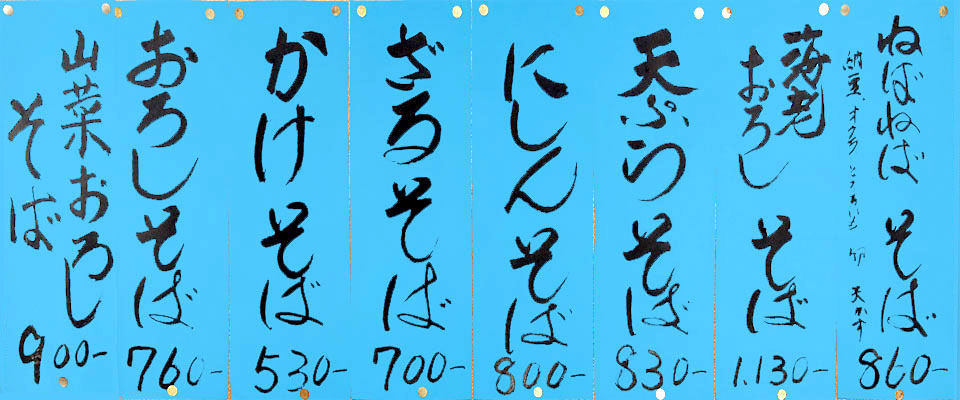 ねばねばそば
納豆、オクラ とろろ
卵 天かす
860-
海老
おろし
そば
1,130-
天ぷらそば
830-
にしんそば
800-
ざるそば
700-
かけそば
530-
おろしそば
760-
山菜おろし
そば
900-